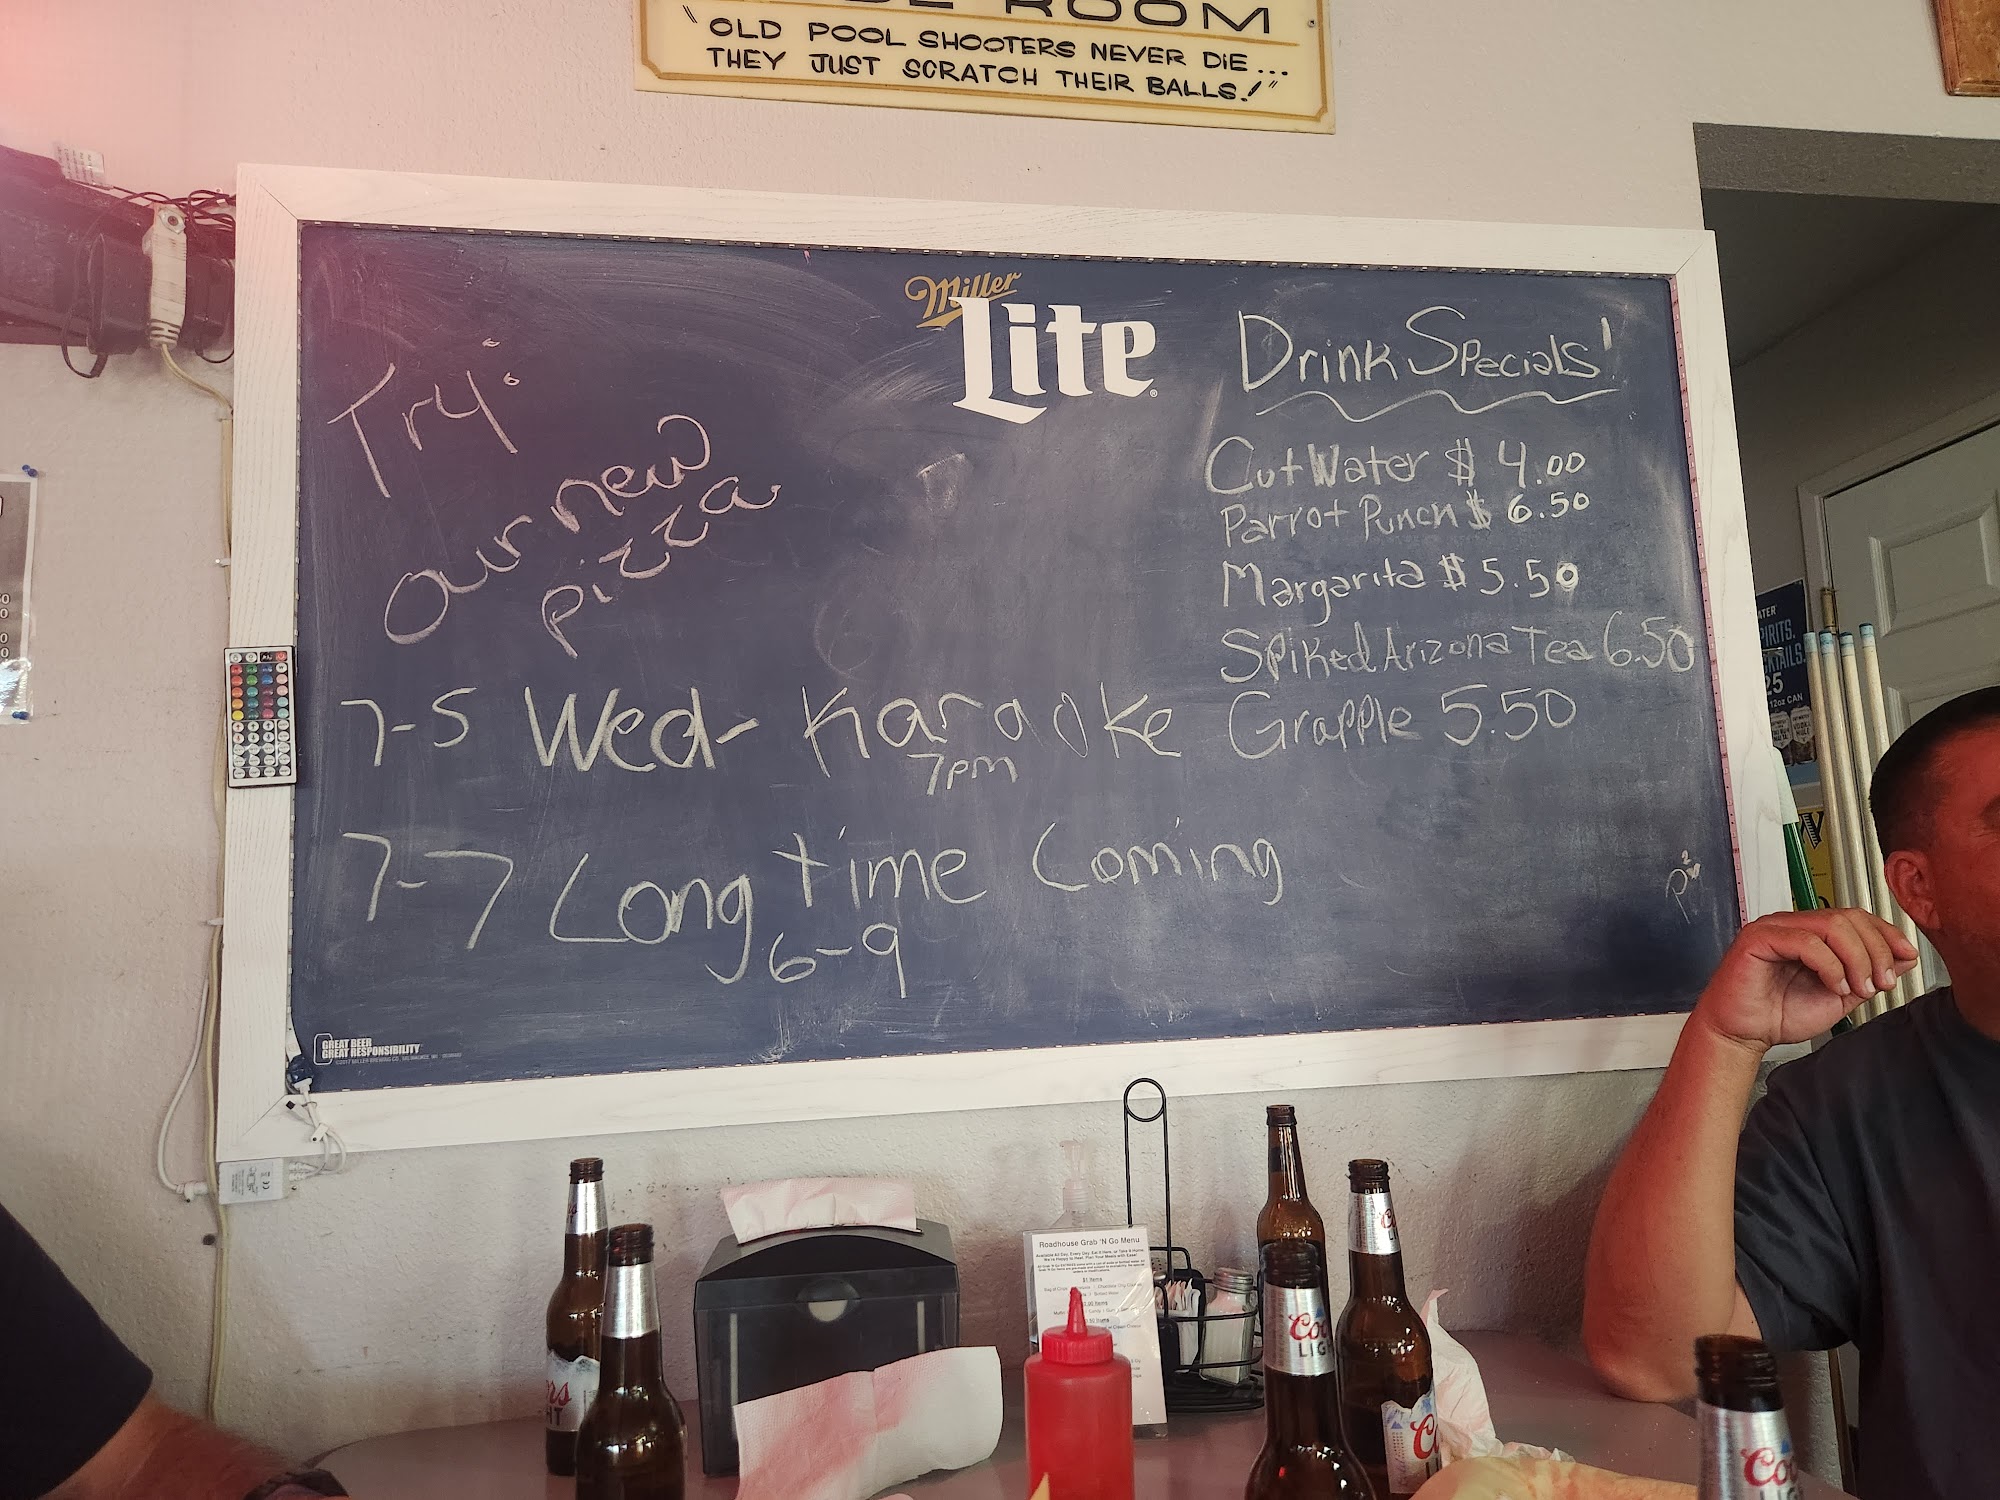 ROOM
"OLD POOL SHOOTERS NEVER DIE...
THEY JUST SCRATCH THEIR BALLS!"
Miller
Lite
Try:
our new
pizza
7-5 Wed- Karaoke
7pm
7-7 Long time Coming
6-9
Drink Specials!
CutWater $ 4.00
Parrot Punch $ 6.50
Margarita $ 5.50
Spiked Arizona Tea 6.50
Grapple 5.50
GREAT BEER
GREAT RESPONSIBILITY
Roadhouse Grab 'N Go Menu
$1 Items
Coors
LIGHT
12oz CAN